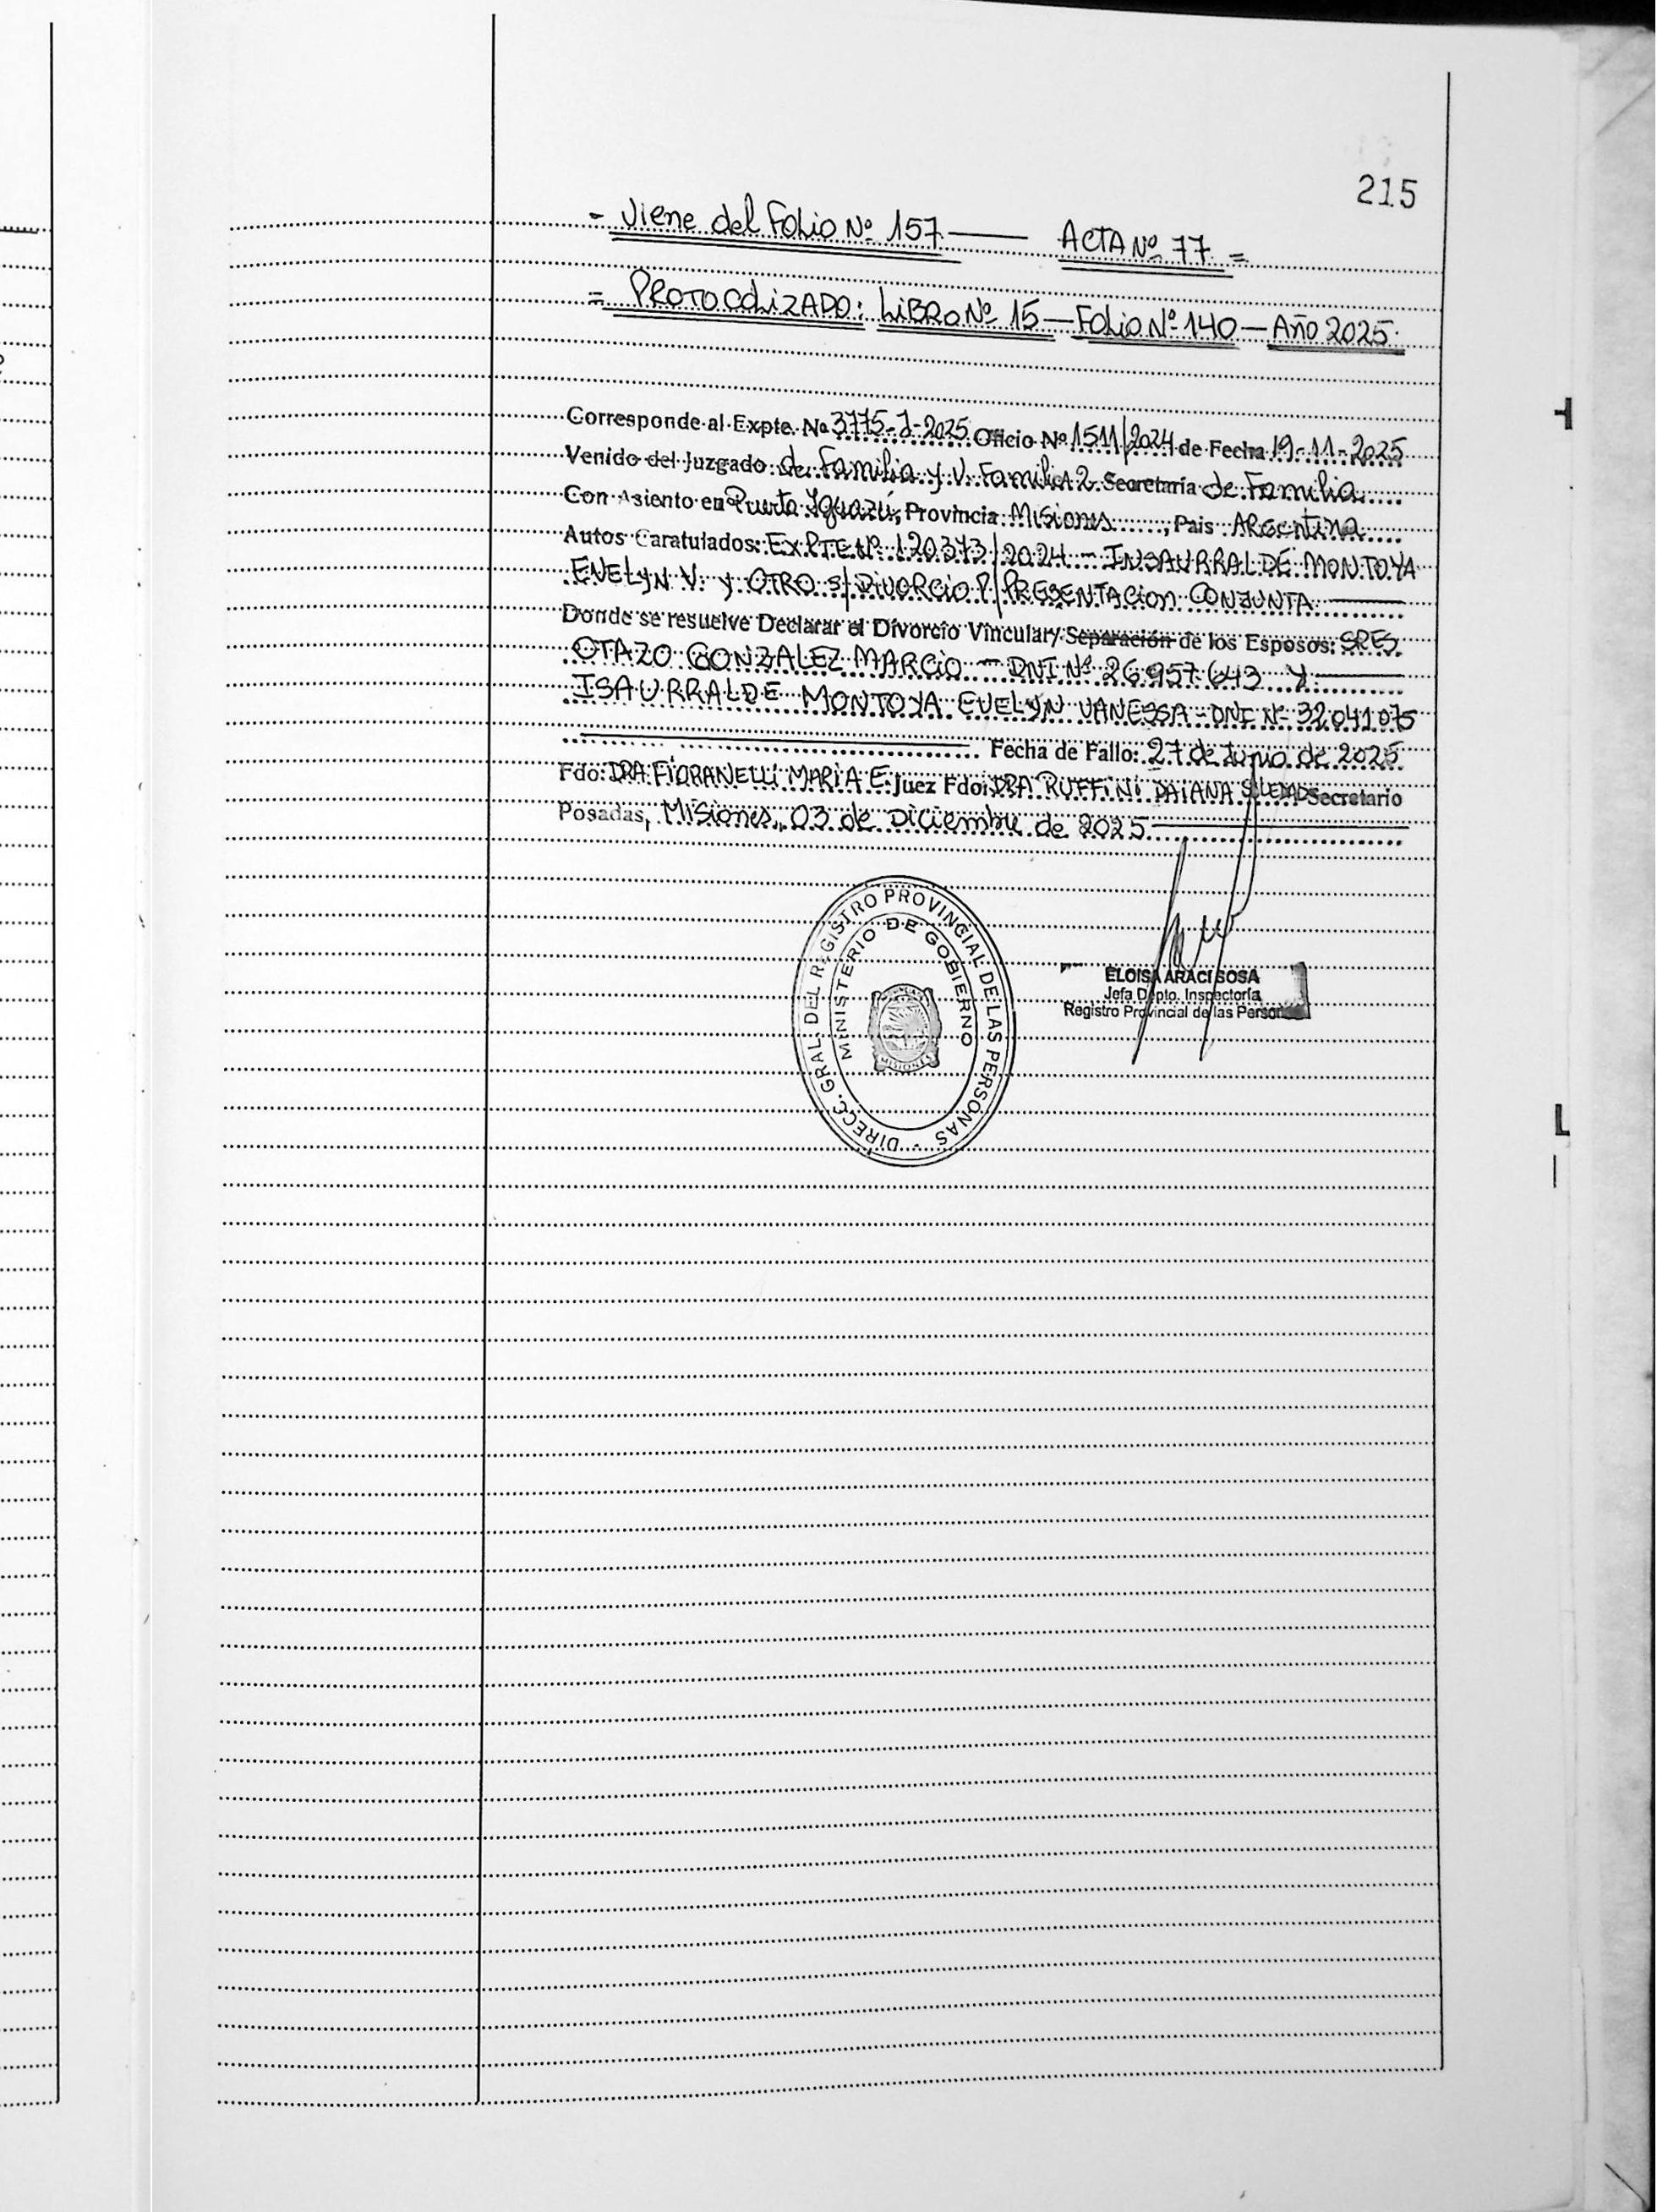 215
- Viene del Folio Nº 157 — ACTA Nº 77 =
= PROTOCOLIZADO: LiBRO Nº 15 — Folio Nº 140 — Año 2025.
Corresponde al Expte. Nº 3775-J-2025 Oficio Nº 1511/2024 de Fecha 19-11-2025
Venido del Juzgado: de Familia y V. Familia 2 Secretaría de Familia
Con Asiento en Puerto Iguazú, Provincia Misiones, Pais ARGentina
Autos Caratulados: EXPTE Nº 120373/2024 - INSAURRALDE MONTOYA
EVELYN V. y OTRO s/ DIVORCIO P/ PRESENTACION CONJUNTA.
Donde se resuelve Declarar el Divorcio Vincular/Separación de los Esposos: SRES
OTAZO GONZALEZ MARCIO - DNI Nº 26.957.643 Y
ISAURRALDE MONTOYA EVELYN VANESSA - DNI Nº 32.041.075
Fecha de Fallo: 27 de Junio de 2025
Fdo: DRA. FIORANELLI MARIA E. Juez Fdo: DRA RUFFINI DAIANA SOLEDAD Secretario
Posadas, Misiones, 03 de Diciembre de 2025
DIRECC. GRAL. DEL REGISTRO PROVINCIAL DE LAS PERSONAS
MINISTERIO DE GOBIERNO
MISIONES
ELOISA ARACI SOSA
Jefa Dpto. Inspectoría
Registro Provincial de las Personas